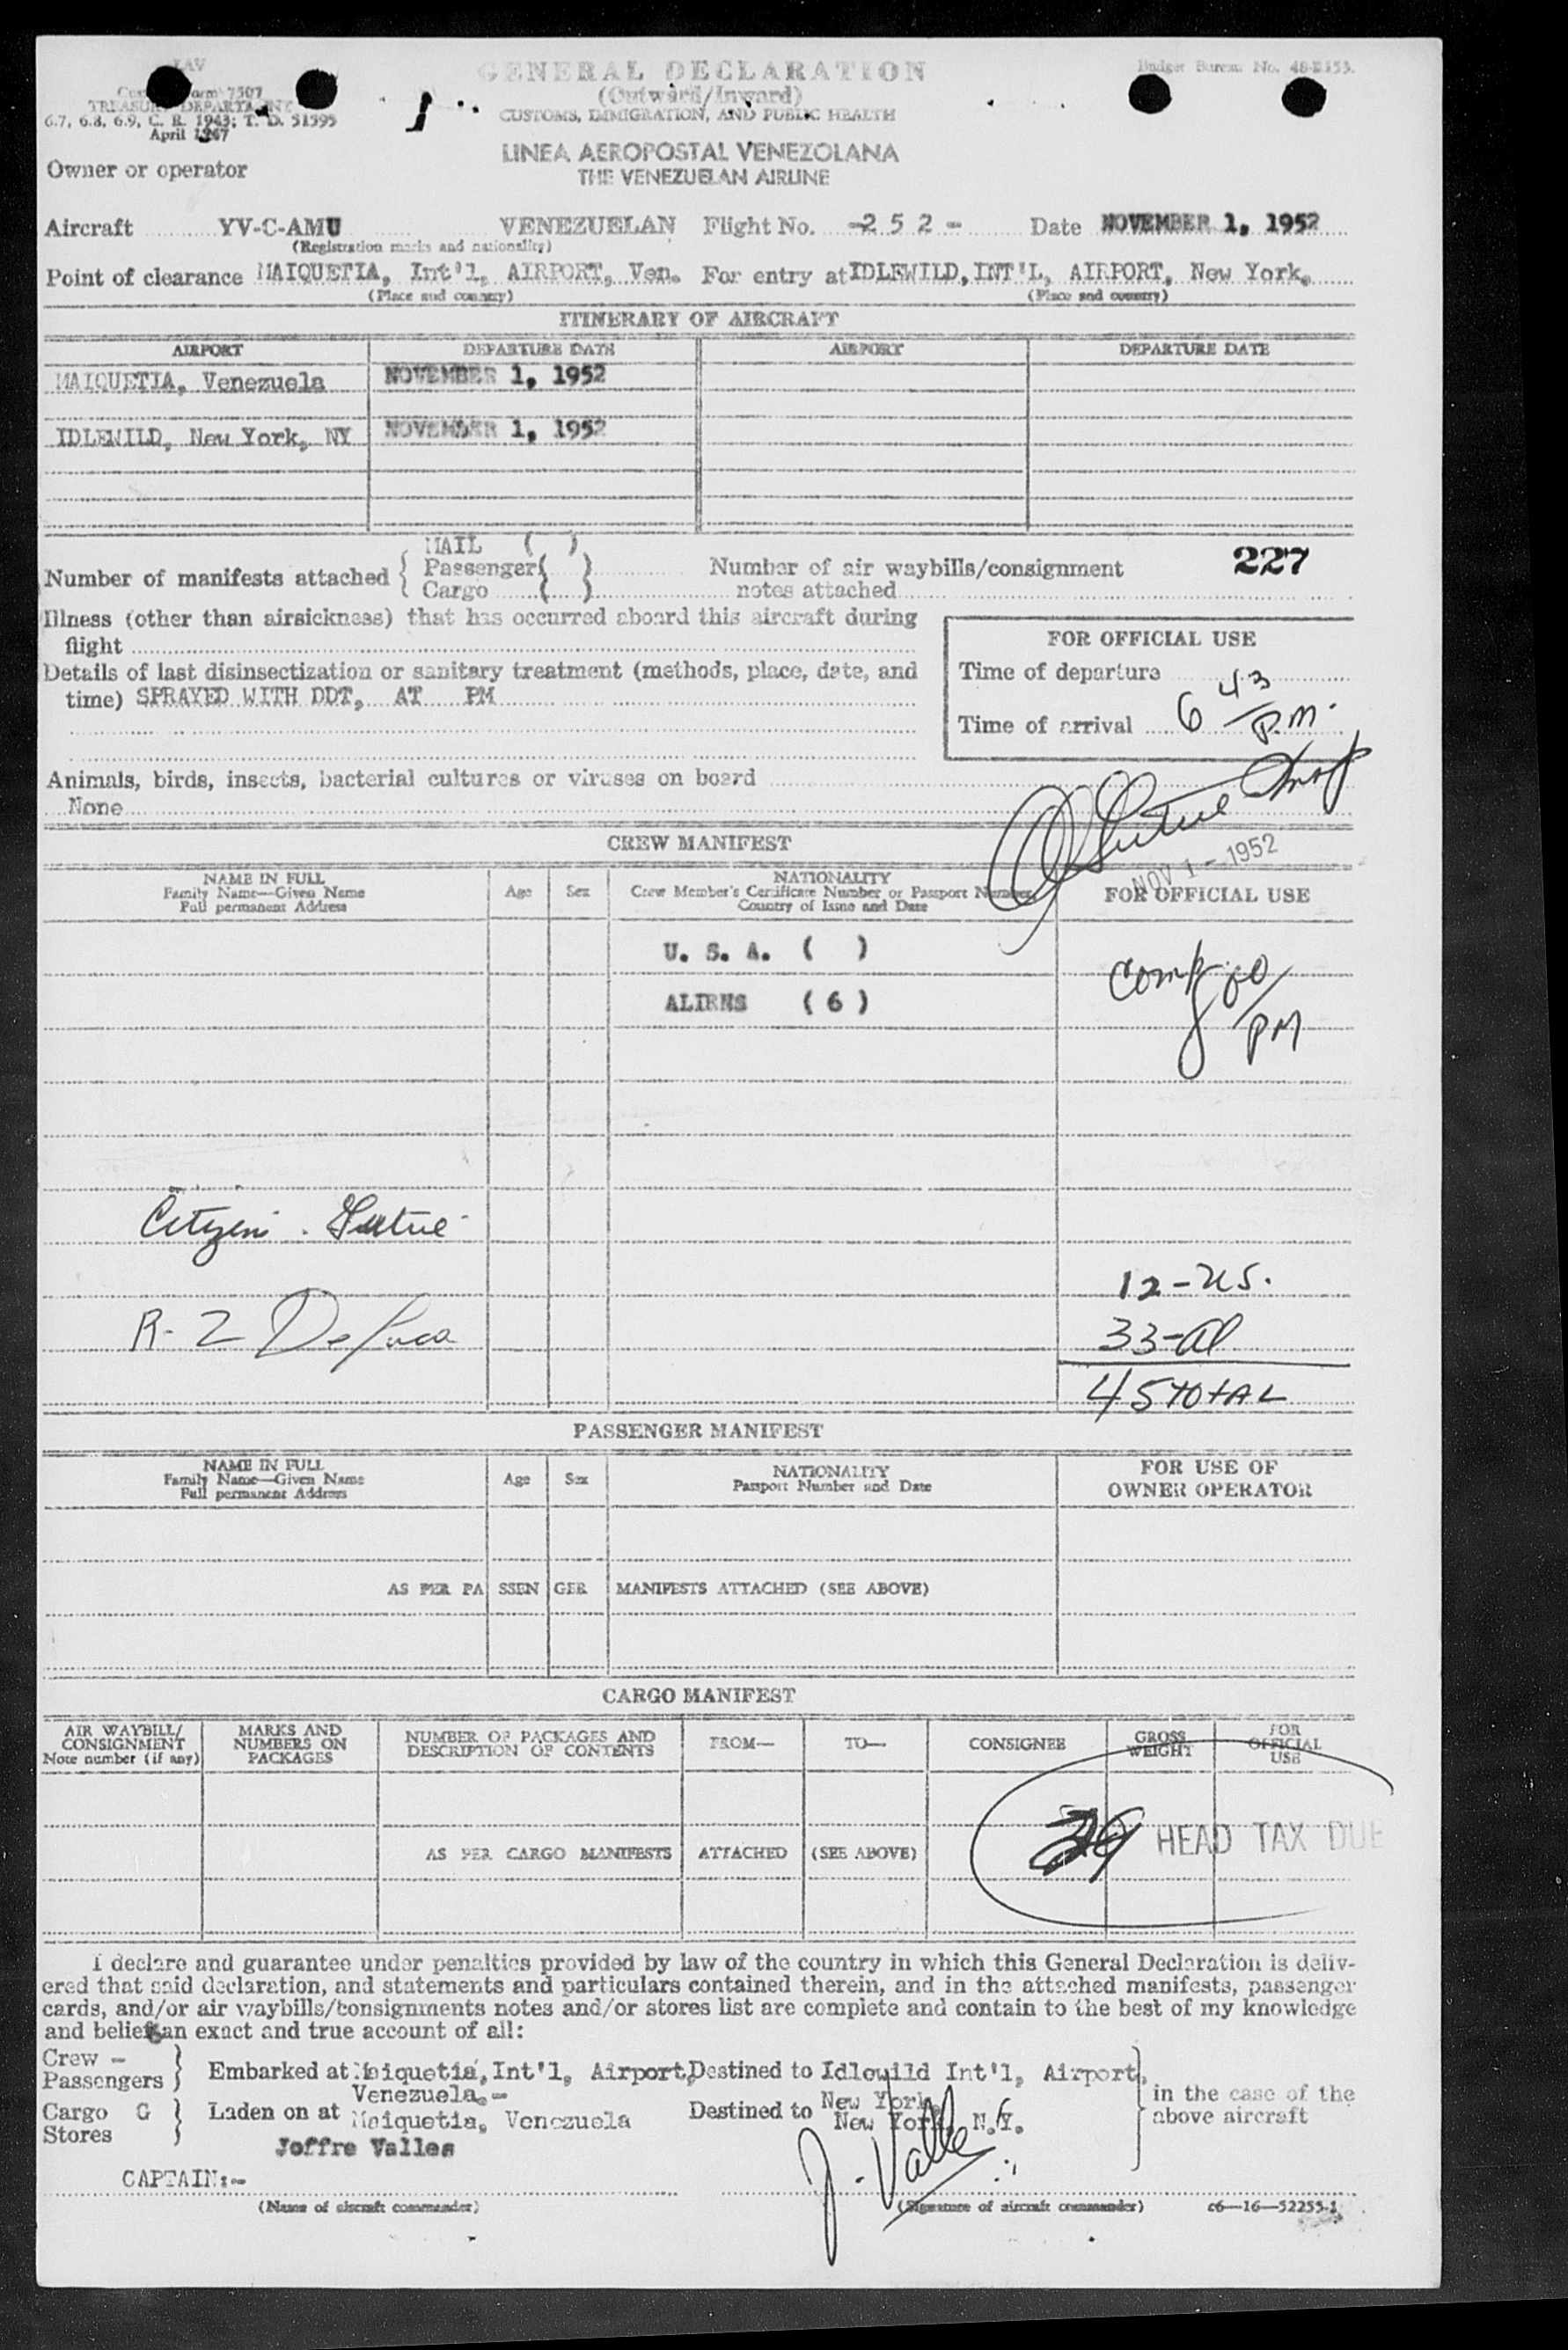 LAV
GENERAL DECLARATION
Budget Bureau No. 48-R353.
Form 7507
(Outward/Inward)
TREASURY DEPARTMENT
CUSTOMS, IMMIGRATION, AND PUBLIC HEALTH
6.7, 6.8, 6.9, C. R. 1943; T. D. 51595
April 1947
LINEA AEROPOSTAL VENEZOLANA
THE VENEZUELAN AIRLINE
Owner or operator
Aircraft YV-C-AMU VENEZUELAN Flight No. -2 5 2 - Date NOVEMBER 1, 1952
(Registration marks and nationality)
Point of clearance MAIQUETIA, Int'l, AIRPORT, Ven. For entry at IDLEWILD, INT'L, AIRPORT, New York,
(Place and country) (Place and country)
ITINERARY OF AIRCRAFT
AIRPORT DEPARTURE DATE AIRPORT DEPARTURE DATE
MAIQUETIA, Venezuela NOVEMBER 1, 1952
IDLEWILD, New York, NY NOVEMBER 1, 1952
MAIL ( )
Number of manifests attached { Passenger ( ) Number of air waybills/consignment 227
Cargo ( ) notes attached
Illness (other than airsickness) that has occurred aboard this aircraft during
flight
FOR OFFICIAL USE
Details of last disinsectization or sanitary treatment (methods, place, date, and
time) SPRAYED WITH DDT, AT PM
Time of departure
Time of arrival 6 43 P.M.
Animals, birds, insects, bacterial cultures or viruses on board
None
CREW MANIFEST
NOV 1 - 1952
NAME IN FULL
Family Name—Given Name
Full permanent Address
Age Sex
NATIONALITY
Crew Member's Certificate Number or Passport Number
Country of Issue and Date
FOR OFFICIAL USE
U. S. A. ( )
ALIENS ( 6 )
Comp
PM
Citizen
12-US.
R-2 DeLuca
33-al
45 TOTAL
PASSENGER MANIFEST
NAME IN FULL
Family Name—Given Name
Full permanent Address
Age Sex
NATIONALITY
Passport Number and Date
FOR USE OF
OWNER OPERATOR
AS PER PASSENGER MANIFESTS ATTACHED (SEE ABOVE)
CARGO MANIFEST
AIR WAYBILL/
CONSIGNMENT
Note number (if any)
MARKS AND
NUMBERS ON
PACKAGES
NUMBER OF PACKAGES AND
DESCRIPTION OF CONTENTS
FROM— TO— CONSIGNEE
GROSS
WEIGHT
FOR
OFFICIAL
USE
AS PER CARGO MANIFESTS ATTACHED (SEE ABOVE)
HEAD TAX DUE
I declare and guarantee under penalties provided by law of the country in which this General Declaration is deliv-
ered that said declaration, and statements and particulars contained therein, and in the attached manifests, passenger
cards, and/or air waybills/consignments notes and/or stores list are complete and contain to the best of my knowledge
and belief an exact and true account of all:
Crew -
Passengers } Embarked at Maiquetia, Int'l, Airport, Destined to Idlewild Int'l, Airport,
Venezuela.- New York,
in the case of the
above aircraft
Cargo G } Laden on at Maiquetia, Venezuela Destined to New York, N.Y.
Stores
Joffre Valles
J. Valle
CAPTAIN:-
(Name of aircraft commander) (Signature of aircraft commander) c6—16—52255-1